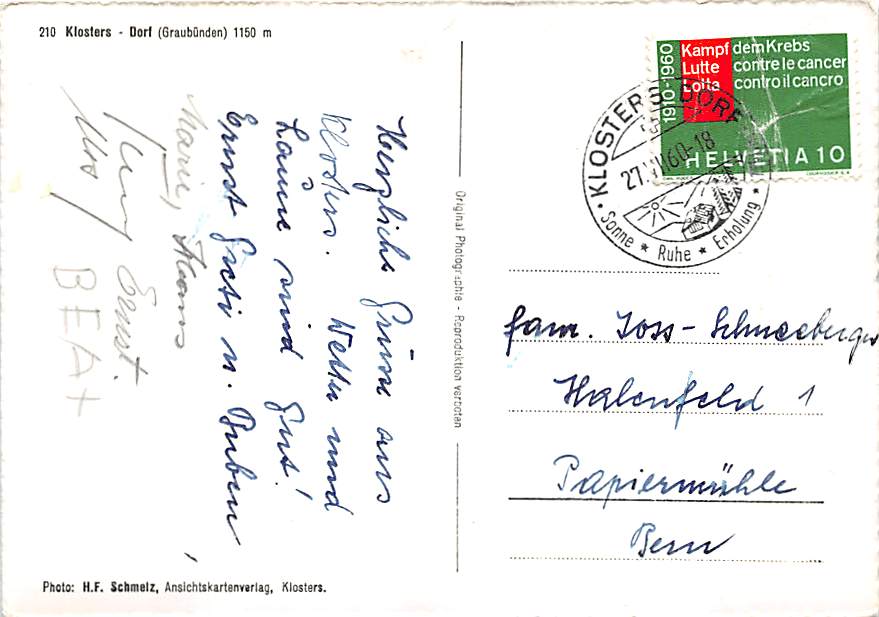 210 Klosters - Dorf (Graubünden) 1150 m
Herzliche Grüsse aus
Klosters. Wetter und
Laune sind gut!
Ernst Gusti u. Buben
Marie, Hans
Ernst.
Urs
BEAT
Photo: H.F. Schmelz, Ansichtskartenverlag, Klosters.
Original Photographie - Reproduktion verboten
1910-1960
Kampf dem Krebs
Lutte contre le cancer
Lotta contro il cancro
HELVETIA 10
KLOSTERS DORF
60-18
Sonne * Ruhe * Erholung
Fam. Joss-Schneeberger
Halenfeld 1
Papiermühle
Bern